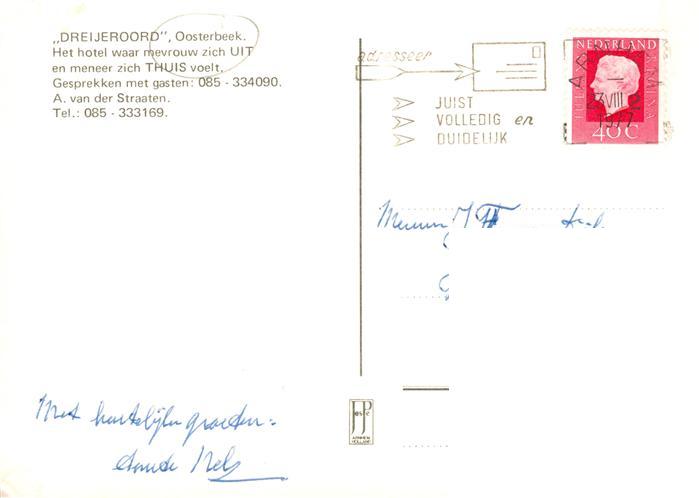 „DREIJEROORD”, Oosterbeek.
Het hotel waar mevrouw zich UIT
en meneer zich THUIS voelt.
Gesprekken met gasten: 085 - 334090.
A. van der Straaten.
Tel.: 085 - 333169.
adresseer
JUIST
VOLLEDIG en
DUIDELIJK
NEDERLAND
JULIANA
40C
1977
ARNHEM
HOLLAND
Met hartelijke groeten